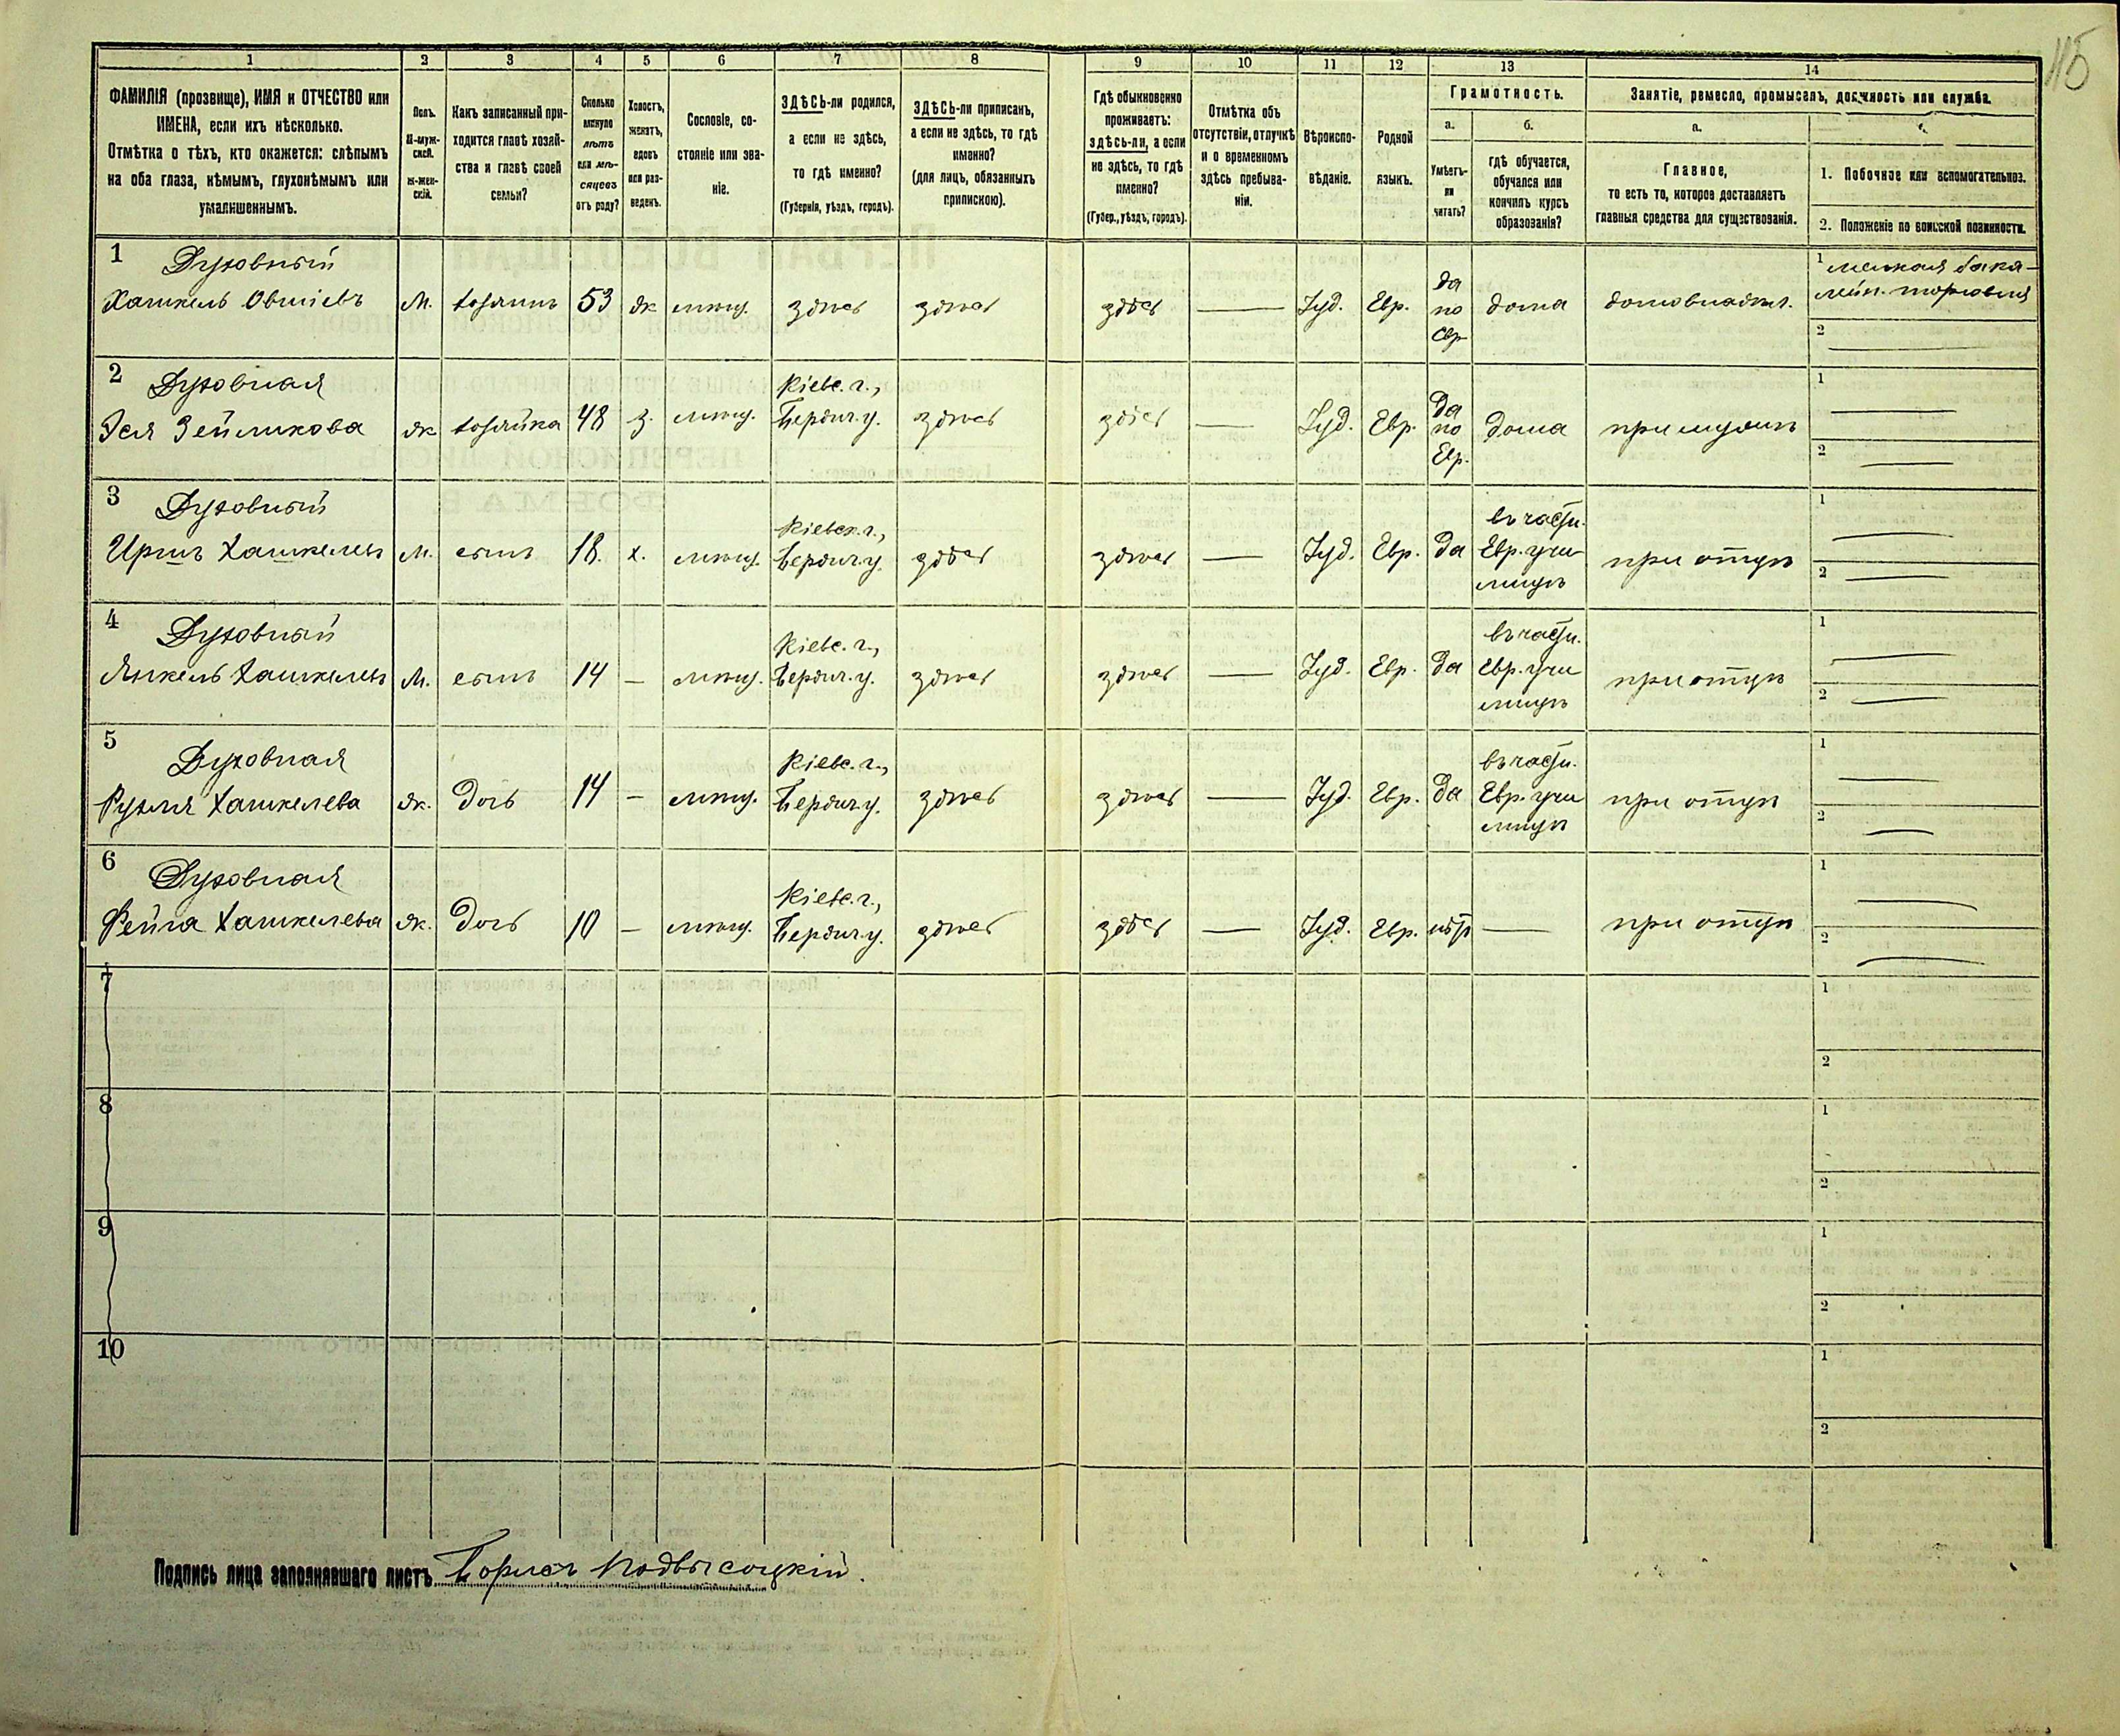 115
1 2 3 4 5 6 7 8 9 10 11 12 13 14
ФАМИЛІЯ (прозвище), ИМЯ и ОТЧЕСТВО или
ИМЕНА, если ихъ нѣсколько.
Отмѣтка о тѣхъ, кто окажется: слѣпымъ
на оба глаза, нѣмымъ, глухонѣмымъ или
умалишеннымъ.
Полъ.
М-муж-
ской.
Ж-жен-
скій.
Какъ записанный при-
ходится главѣ хозяй-
ства и главѣ своей
семьи?
Сколько
минуло
лѣтъ
или мѣ-
сяцевъ
отъ роду?
Холостъ,
женатъ,
вдовъ
или раз-
веденъ.
Сословіе, со-
стояніе или зва-
ніе.
ЗДѢСЬ-ли родился,
а если не здѣсь,
то гдѣ именно?
(Губернія, уѣздъ, городъ).
ЗДѢСЬ-ли приписанъ,
а если не здѣсь, то гдѣ
именно?
(для лицъ, обязанныхъ
припискою).
Гдѣ обыкновенно
проживаетъ:
здѣсь-ли, а если
не здѣсь, то гдѣ
именно?
(Губер., уѣздъ, городъ).
Отмѣтка объ
отсутствіи, отлучкѣ
и о временномъ
здѣсь пребыва-
ніи.
Вѣроиспо-
вѣданіе.
Родной
языкъ.
Грамотность.
а.
Умѣетъ-
ли
читать?
б.
гдѣ обучается,
обучался или
кончилъ курсъ
образованія?
Занятіе, ремесло, промыселъ, должность или служба.
а.
Главное,
то есть то, которое доставляетъ
главныя средства для существованія.
1. Побочное или вспомогательное.
2. Положеніе по воинской повинности.
1 Духовный
Хашкель Овшіевъ М. хозяинъ 53 ж мѣщ. здѣсь здѣсь здѣсь — Іуд. Евр. да по Евр дома домовладѣл. 1 мелкая бака-
лейн. торговля
2 —
2 Духовная
Зейликова ж хозяйка 48 з. мѣщ. Кіевс. г., Бердич. у. здѣсь здѣсь — Іуд. Евр. Да по Евр. дома при мужѣ 1 —
2 —
3 Духовный
Иршъ Хашкелев М. сынъ 18. х. мѣщ. Кіевск. г., Бердич. у. здѣсь здѣсь — Іуд. Евр. да въ частн. Евр. учи
лищѣ при отцѣ 1 —
2 —
4 Духовный
Янкель Хашкелев М. сынъ 14 — мѣщ. Кіевс. г., Бердич. у. здѣсь здѣсь — Іуд. Евр. да въ частн. Евр. учи
лищѣ при отцѣ 1 —
2 —
5 Духовная
Рухля Хашкелева ж. дочь 14 — мѣщ. Кіевс. г., Бердич. у. здѣсь здѣсь — Іуд. Евр. да въ частн. Евр. учи
лищѣ при отцѣ 1 —
2 —
6 Духовная
Фейга Хашкелева ж. дочь 10 — мѣщ. Кіевс. г., Бердич. у. здѣсь здѣсь — Іуд. Евр. нѣтъ — при отцѣ 1 —
2 —
7 1
2
8 1
2
9 1
2
10 1
2
Подпись лица заполнявшаго листъ Борисъ Подвысоцкій.